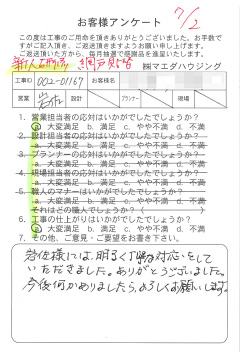 お客様アンケート
7/2
この度は工事のご用命を頂きありがとうございました。お手数で
すがご記入頂き、ご返送頂きますようお願い申し上げます。
ご返送頂いた方から、毎月抽選で感謝品を進呈いたします。
㈱マエダハウジング
工事ID 002-01169 お客様名
営業 設計 プランナー 現場
1. 営業担当者の応対はいかがでしたでしょうか?
a. 大変満足 b. 満足 c. やや不満 d. 不満
2. 設計担当者の応対はいかがでしたでしょうか?
a. 大変満足 b. 満足 c. やや不満 d. 不満
3. プランナーの応対はいかがでしたでしょうか?
a. 大変満足 b. 満足 c. やや不満 d. 不満
4. 現場担当者の応対はいかがでしたでしょうか?
a. 大変満足 b. 満足 c. やや不満 d. 不満
5. 職人のマナーはいかがでしたでしょうか?
a. 大変満足 b. 満足 c. やや不満 d. 不満
それはどの職人でしょうか?( )
6. 工事の仕上がりはいかがでしたでしょうか?
a. 大変満足 b. 満足 c. やや不満 d. 不満
7. その他、ご意見・ご要望をお書き下さい。
様には、明るく丁寧な対応をして
いただきました。ありがとうございました。
今後何かありましたら、よろしくお願いします。